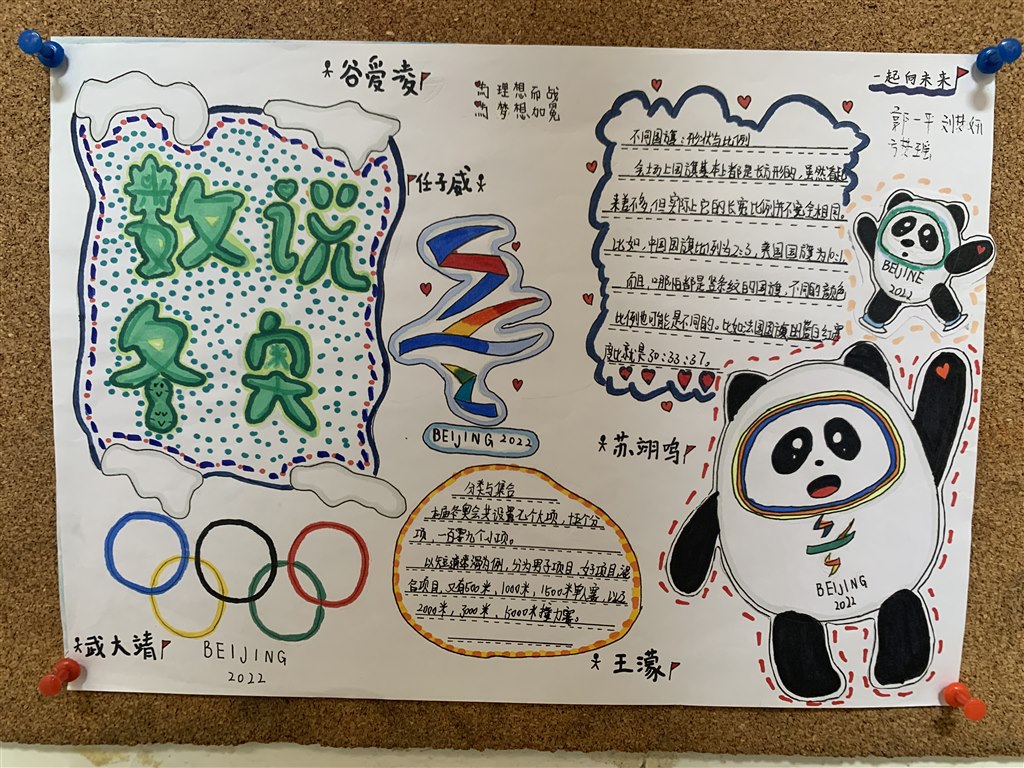 谷爱凌
为理想而战
为梦想加冕
一起向未来
郭一平
数说
冬奥
任子威
BEIJING 2022
不同国旗:形状与比例
会场上国旗基本上都是长方形的,虽然看起
来差不多,但实际上它的长宽比例并不完全相同。
比如,中国国旗比例为2:3,美国国旗为10:1
而且,哪怕都是竖条纹的国旗,不同的颜色
比例也可能是不同的。比如法国国旗的蓝白红宽
度比就是30:33:37。
BEIJINE
2022
苏翊鸣
分类与集合
本届冬奥会共设置七个大项,十五个分
项,一百零九个小项。
以短道速滑为例,分为男子项目,女子项目,混
合项目,又有500米,1000米,1500米单人赛,以及
2000米,3000米,5000米接力赛。
BEIJING
2022
武大靖
BEIJING
2022
王濛